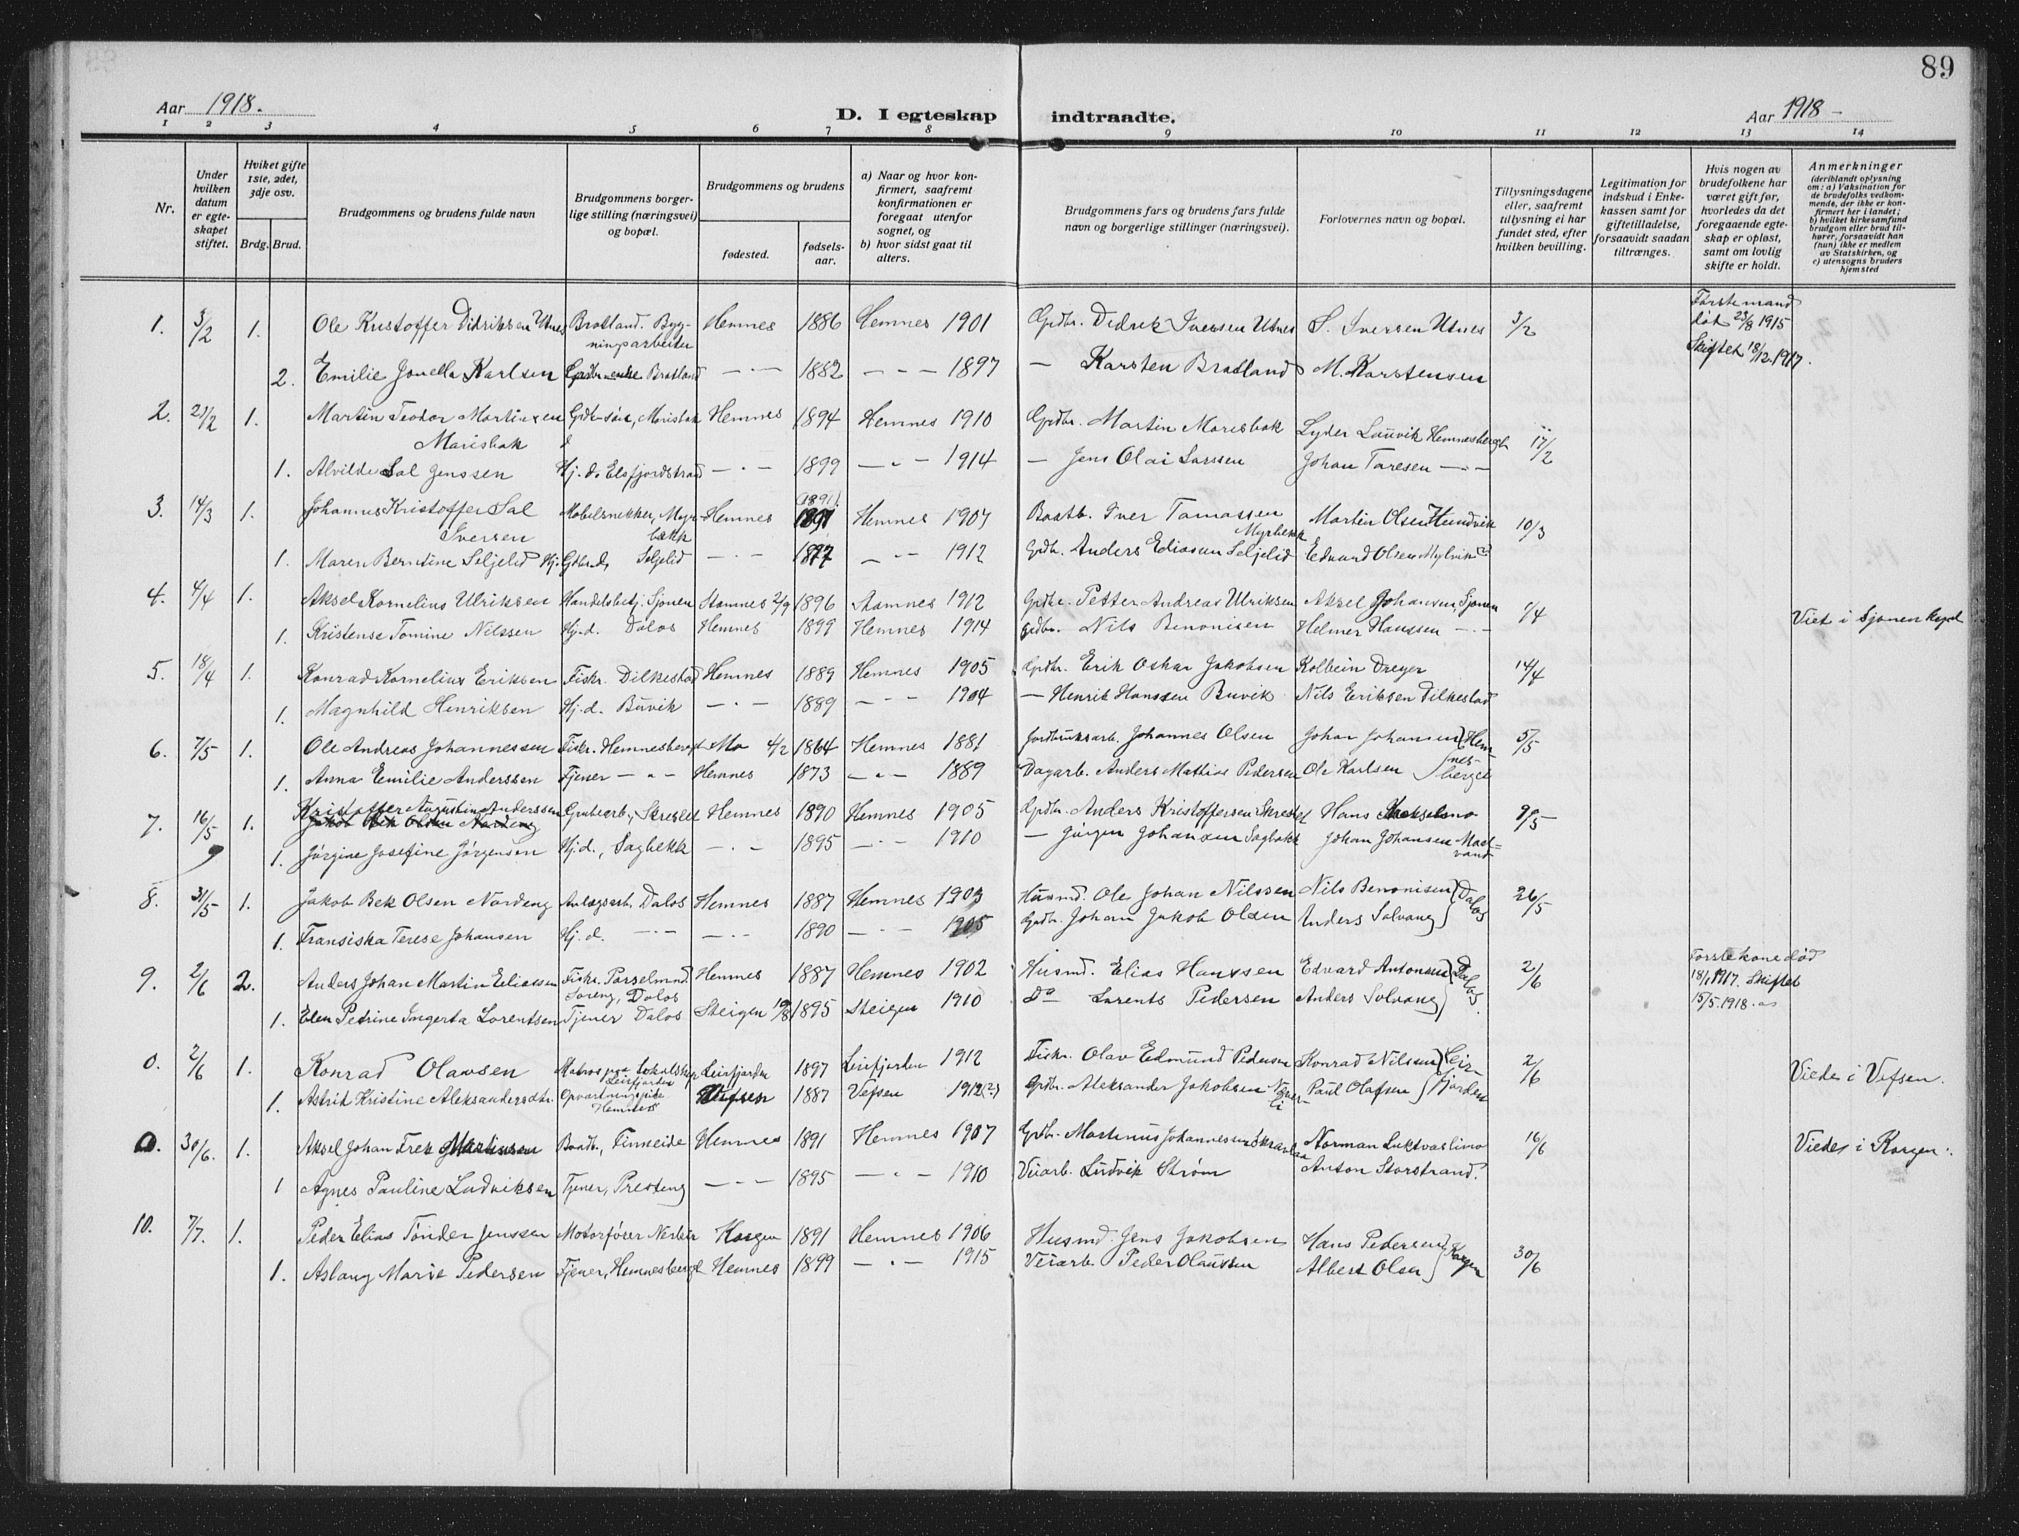 89
Aar 1918.
D. I egteskap indtraadte.
Aar 1918
1 2 3 4 5 6 7 8 9 10 11 12 13 14
Nr.
Under hvilken datum er egteskapet stiftet.
Hviket gifte 1ste, 2det, 3dje osv.
Brdg. Brud.
Brudgommens og brudens fulde navn
Brudgommens borgerlige stilling (næringsvei) og bopæl.
Brudgommens og brudens
fødested.
fødselsaar.
a) Naar og hvor konfirmert, saafremt konfirmationen er foregaat utenfor sognet, og
b) hvor sidst gaat til alters.
Brudgommens fars og brudens fars fulde navn og borgerlige stillinger (næringsvei).
Forlovernes navn og bopæl.
Tillysningsdagene eller, saafremt tillysning ei har fundet sted, efter hvilken bevilling.
Legitimation for indskud i Enkekassen samt for giftetilladelse, forsaavidt saadan tiltrænges.
Hvis nogen av brudefolkene har været gift før, hvorledes da det foregaaende egteskap er opløst, samt om lovlig skifte er holdt.
Anmerkninger (deriblandt oplysning om: a) Vaksination for de brudefolks vedkommende, der ikke er konfirmert her i landet; b) hvilket kirkesamfund brudgom eller brud tilhører, forsaavidt han (hun) ikke er medlem av Statskirken, og c) utensogns bruders hjemsted
1. 3/2 1. Ole Kristoffer Didriksen Utnes Bratland. Bygningsarbeiter Hemnes 1886 Hemnes 1901 Grdbr. Didrik Iversen Utnes S. Iversen Utnes 3/2 Første mand død 23/8 1915 Skiftet 18/12.1917.
2. Emilie Jonella Karlsen Grdbr. enke Bratland — · — 1882 — - — 1897 — Karsten Bratland M. Karstensen
2. 21/2 1. Martin Teodor Martinsen Marisbak Grdbr. søn, Marisbak Hemnes 1894 Hemnes 1910 Grdbr. Martin Marisbak Lyder Lauvik Hemnesberget 17/2
1. Alvilde Sal Jenssen Hj. d. Elsfjordstrand — · — 1899 — „ — 1914 — Jens Olai Larssen Johan Taresen — · —
3. 14/3 1. Johannes Kristoffer Sal Iversen Møbelsnekker, Myrbækk Hemnes (1891) 1891 Hemnes 1907 Baatb. Iver Tomassen Myrbekk Martin Olsen Hundvik 10/3
1. Maren Berntine Seljelid Hj. Gdb. d, Seljelid — · — 1897 — „ — 1912 Grdb. Anders Eliasen Seljelid Edvard Olsen
4. 4/4 1. Aksel Kornelius Ulriksen Handelsbetj. Sjonen Stamnes 2/9 1896 Stamnes 1912 Grdbr. Petter Andreas Ulriksen Aksel Johansen, Sjonen 1/4 Viet i Sjonen Kapel
1. Kristense Tomine Nilssen Hj. d. Dalos Hemnes 1899 Hemnes 1914 Grdbr. Nils Benonisen Helmer Hanssen — · —
5. 18/4 1. Konrad Kornelius Eriksen Fiskr. Dilkestad Hemnes 1889 Hemnes 1905 Grdbr. Erik Oskar Jakobsen Kolbein Dreyer 14/4
1. Magnhild Henriksen Hj. d. Buvik — · — 1889 — „ — 1904 — Henrik Hanssen Buvik Nils Eriksen Dilkestad
6. 7/5 1. Ole Andreas Johannessen Fiskr. Hemnesberget Mo 4/2 1864 Hemnes 1881 Jordbruksarb. Johannes Olsen Johan Johansen } Hemnesberget 5/5
1. Anna Emilie Anderssen Tjener — „ — Hemnes 1873 — „ — 1889 Dagarb. Anders Mathias Pedersen Ole Karlsen
7. 16/5 1. Kristoffer Augustin Anderssen Grubearb, Skreslet Hemnes 1890 Hemnes 1905 Grdbr. Anders Kristoffersen Skreslet Hans 9/5
Jakob Bek Olsen Nordeng
1. Jørgine Josefine Jørgensen Hj. d., Sagbekk — · — 1895 — · — 1910 — Jørgen Johansen Sagbakk Johan Johansen
8. 31/5 1. Jakob Bek Olsen Nordeng Anlægsarb. Dalos Hemnes 1887 Hemnes 1903 Husmd. Ole Johan Nilssen Nils Benonisen } Dalos 26/5
1. Fransiska Terese Johansen Hj. d. — · — — · — 1890 — · — 1905 Grdbr. Johan Jakob Olsen Anders Solvang
9. 2/6 2. Anders Johan Martin Eliassen Fiskr. Parselmnd. Soreng, Dalos Hemnes 1887 Hemnes 1902 Husmd. Elias Hanssen Edvard Antonsen } Dalos. 2/6 Første kone død 18/1 1917. Skiftet 15/5.1918.
1. Elen Petrine Ingerta Lorentsen Tjener Dalos Steigen 19/8 1895 Steigen 1910 Do Lorents Pedersen Anders Solvang
0. 2/6 1. Konrad Olavsen Matros paa Lokalskip Leirfjorden Leirfjorden 1897 Leirfjorden 1912 Fiskr. Olav Edmund Pedersen Konrad Nilssen } Leirfjorden 2/6 Viede i Vefsen.
1. Astrid Kristine Aleksandersdtr. Opvartningspike Hemnes Vefsen 1887 Vefsen 1912(?) Grdbr. Aleksander Jakobsen Paul Olafsen
0. 30/6. 1. Aksel Johan Frek Martinsen Baatb, Finneide Hemnes 1891 Hemnes 1907 Grdbr. Martinus Johannessen Norman Luktvaslimo 16/6 Viedes i Korgen.
1 Agnes Pauline Ludviksen Tjener, Presteng — - — 1895 — „ — 1910 Veiarb. Ludvik Strøm Anton Storstrand.
10. 7/7. 1. Peder Elias Tønder Jenssen Motorfører Nerleir Korgen 1891 Hemnes 1906 Husmd. Jens Jakobsen Hans Pedersen } Korgen 30/6
1. Aslaug Marie Pedersen Tjener, Hemnesberget Hemnes 1899 — „ — 1915 Veiarb Peder Olaussen Albert Olsen